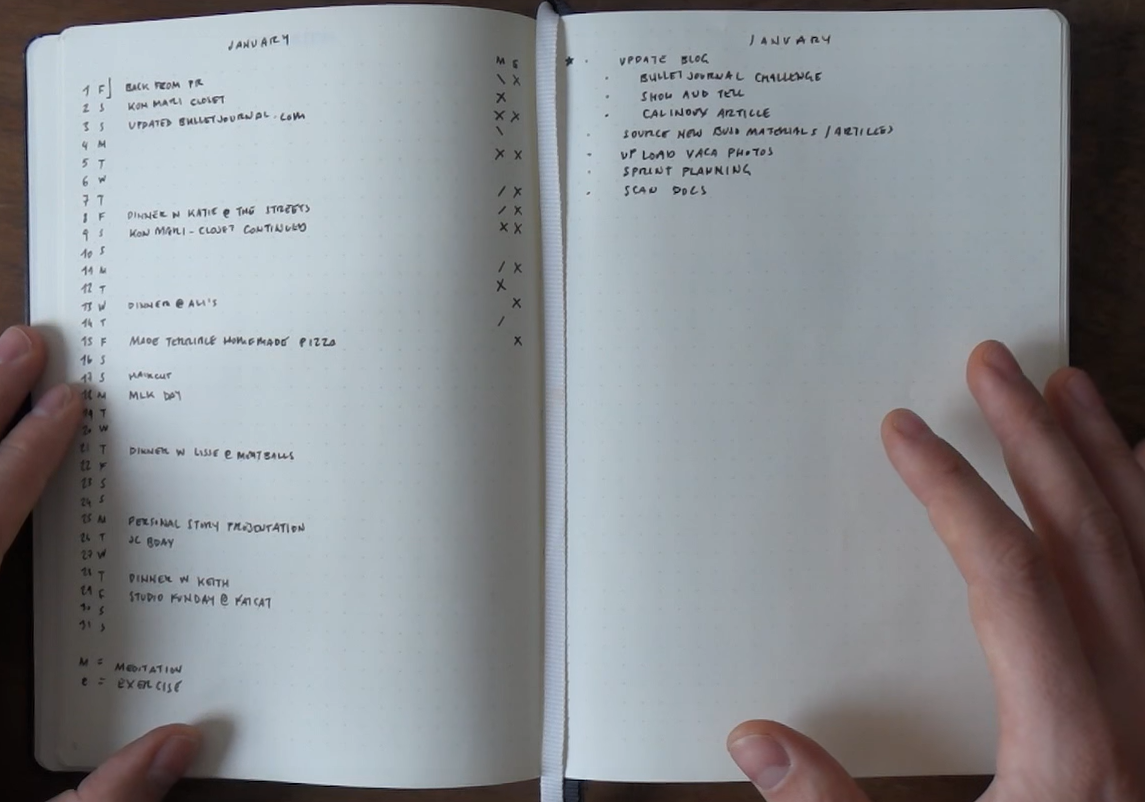 JANUARY
M E
1 F] BACK FROM PR \ X
2 S KON MARI CLOSET X
3 S UPDATED BULLETJOURNAL.COM X X
4 M \
5 T X X
6 W
7 T / X
8 F DINNER W KATIE @ THE STREETS / X
9 S KON MARI - CLOSET CONTINUED X X
10 S
11 M / X
12 T X
13 W DINNER @ ALI'S X
14 T /
15 F MADE TERRIBLE HOMEMADE PIZZA X
16 S
17 S HAIRCUT
18 M MLK DAY
19 T
20 W
21 T DINNER W LISSE @ MEATBALLS
22 F
23 S
24 S
25 M PERSONAL STORY PRESENTATION
26 T JC BDAY
27 W
28 T DINNER W KEITH
29 F STUDIO FUNDAY @ FATCAT
30 S
31 S
M = MEDITATION
E = EXERCISE
JANUARY
★ · UPDATE BLOG
· BULLETJOURNAL CHALLENGE
· SHOW AND TELL
· ARTICLE
· SOURCE NEW BUJO MATERIALS / ARTICLES
· UPLOAD VACA PHOTOS
· SPRINT PLANNING
· SCAN DOCS